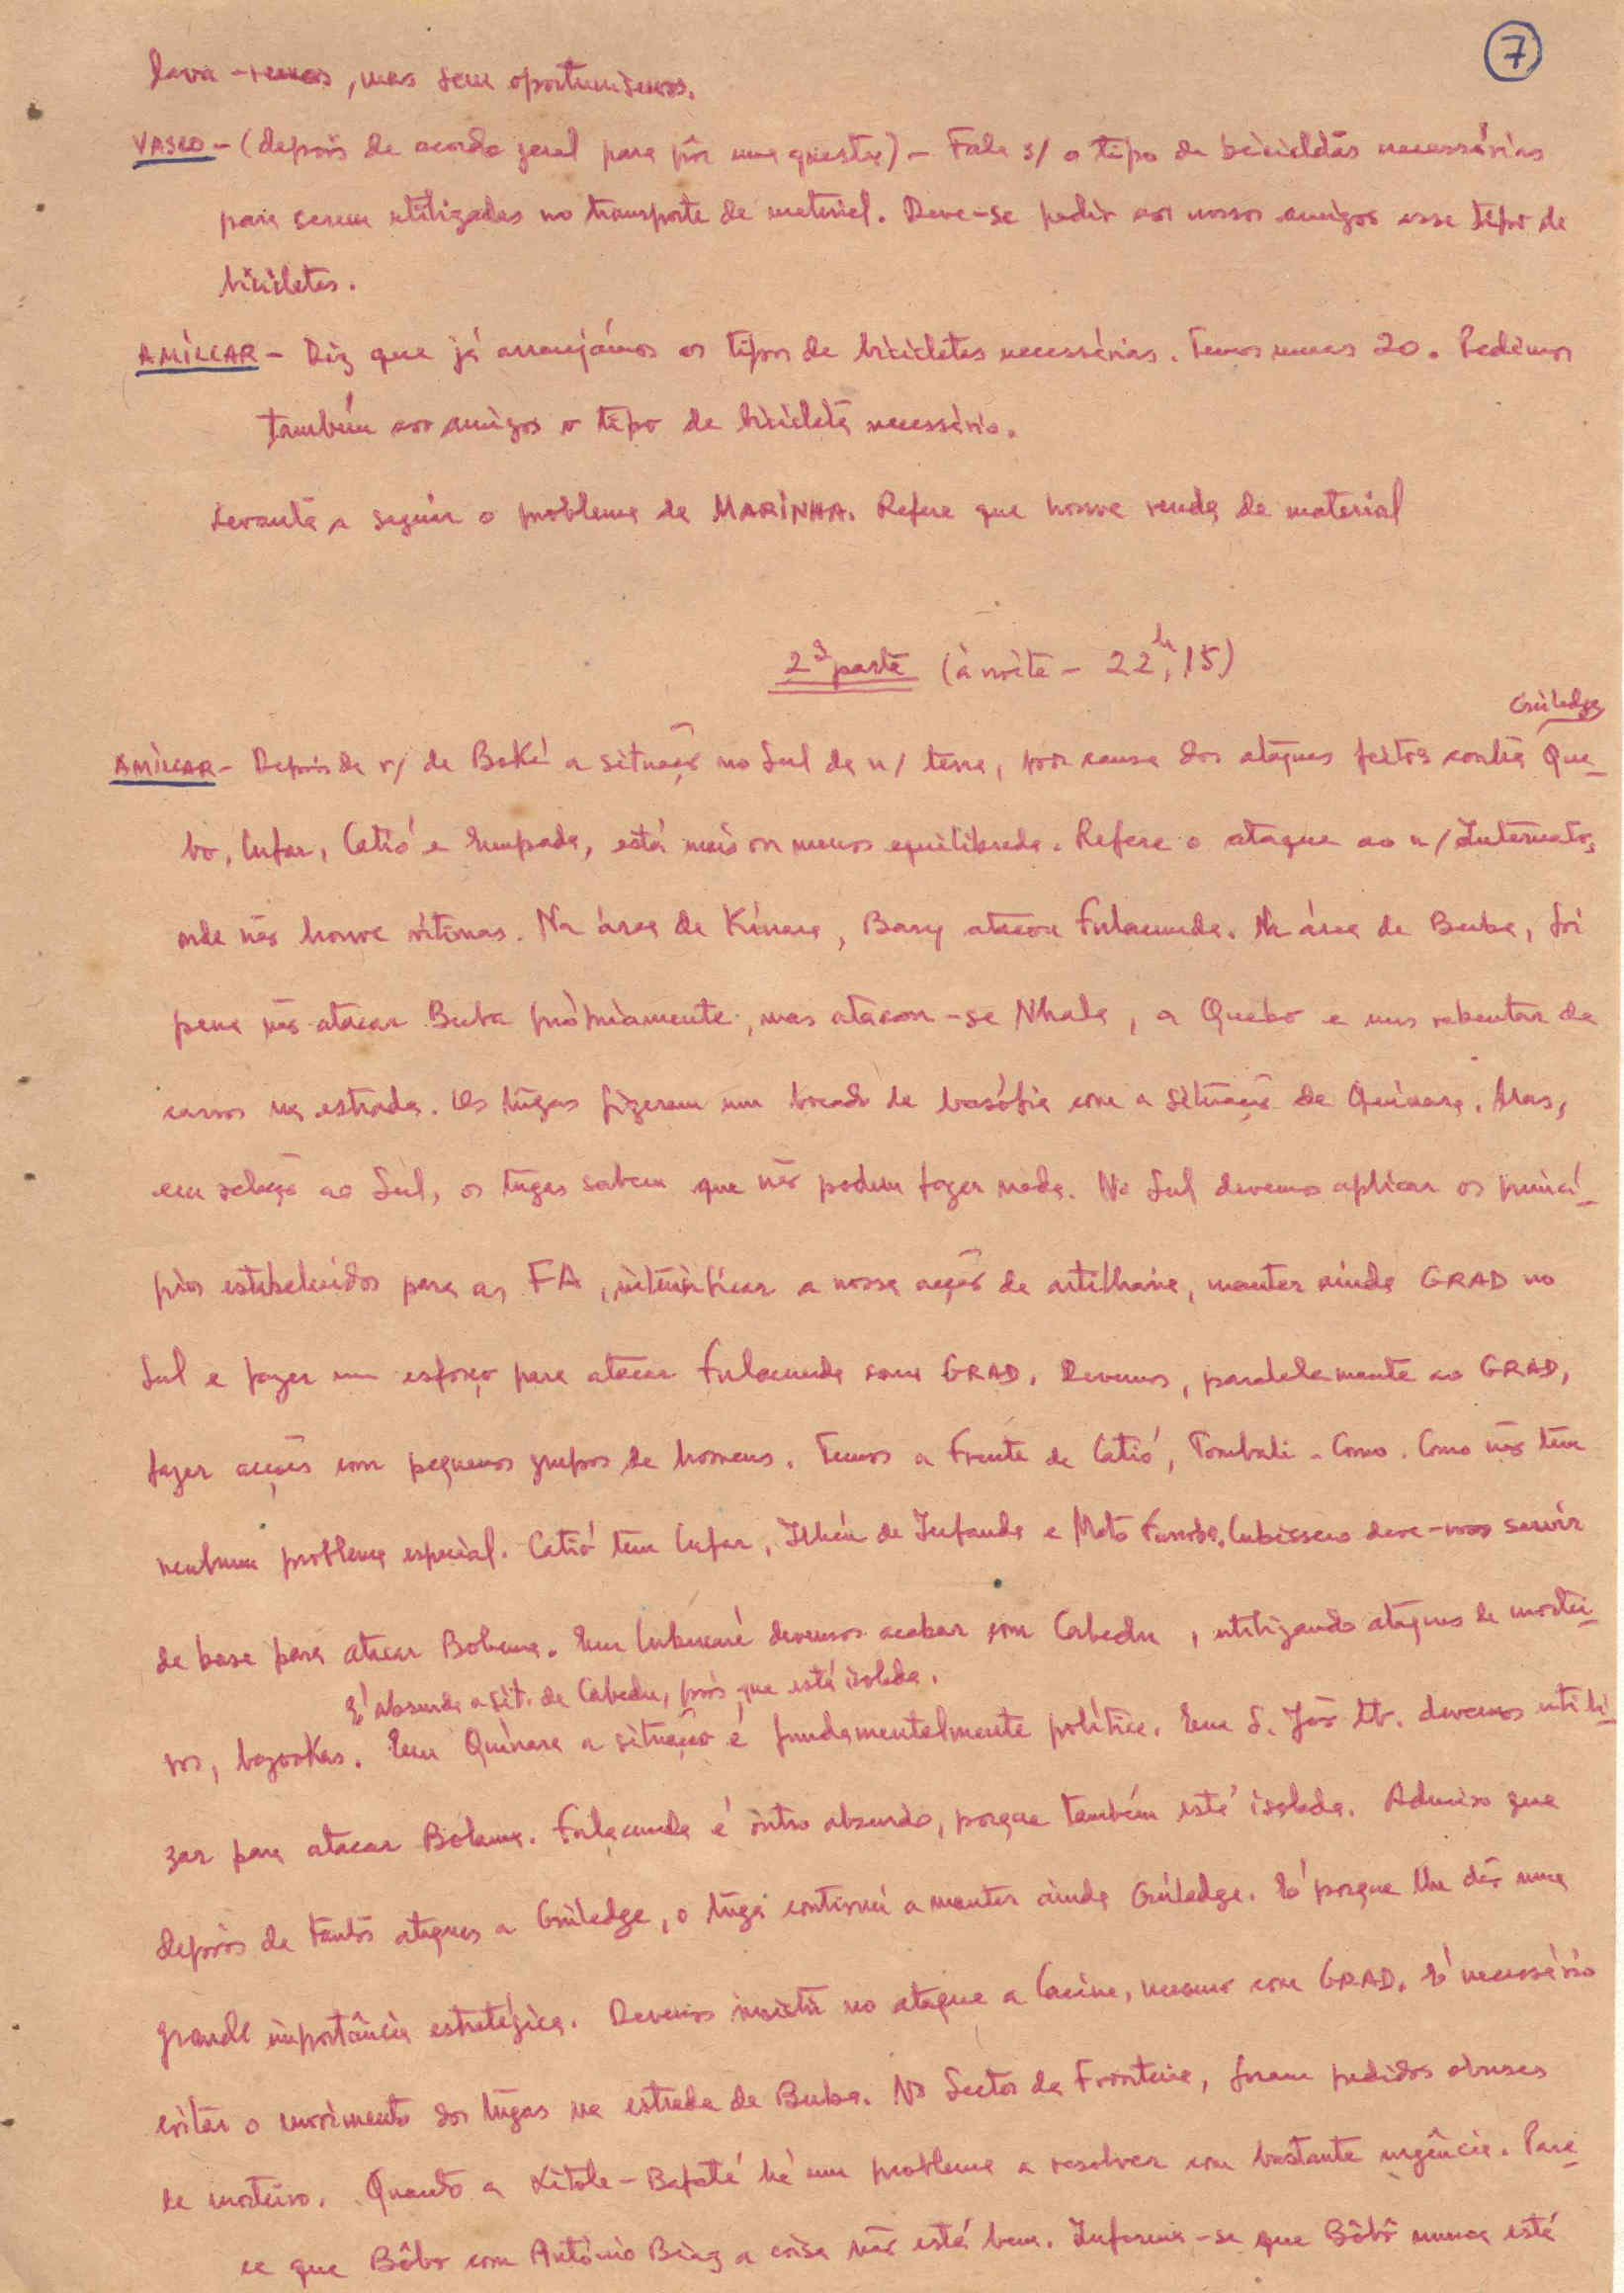 7
lava-remos, mas sem oportunismos.
VASCO - (depois de acordo geral para pôr uma questão) - Fala s/ o tipo de bicicletas necessárias
para serem utilizadas no transporte de material. Deve-se pedir aos nossos amigos esse tipo de
bicicletas.
AMÍLCAR - Diz que já arranjámos os tipos de bicicletas necessárias. Temos umas 20. Pedimos
também aos amigos o tipo de bicicleta necessário.
Levanta a seguir o problema da MARINHA. Refere que houve venda de material
2ª parte (à noite - 22h,15)
Guiledge
AMÍLCAR - Depois da v/ de Boké a situação no Sul da n/ terra, por causa dos ataques feitos contra Que-
bo, Cufar, Catió e Empada, está mais ou menos equilibrada. Refere o ataque ao n/ Internato,
onde não houve vítimas. Na área de Kínara, Bary atacou Fulacunda. Na área de Buba, foi
pena não atacar Buba pròpriamente, mas atacou-se Nhala, a Quebo e uns rebentar de
carros na estrada. Os tugas fizeram um bocado de basófia com a situação de Quínara. Mas,
em relação ao Sul, os tugas sabem que não podem fazer nada. No Sul devemos aplicar os princí-
pios estabelecidos para as FA, intensificar a nossa acção de artilharia, manter ainda GRAD no
Sul e fazer um esforço para atacar Fulacunda com GRAD. Devemos, paralelamente ao GRAD,
fazer acções com pequenos grupos de homens. Temos a Frente de Catió, Tombali - Como. Como não tem
nenhum problema especial. Catió tem Cufar, Ilhéu de Infanda e Mato Farroba. Cubisseco deve-nos servir
de base para atacar Bolama. Em Cubucaré devemos acabar com Cabedu, utilizando ataques de mortei-
É absurda a sit. de Cabedu, pois que está isolada.
ros, bazookas. Em Quínara a situação é fundamentalmente política. Em S. João Ltv. devemos utili-
zar para atacar Bolama. Fulacunda é outro absurdo, porque também está isolada. Admiro que
depois de tantos ataques a Guiledge, o tuga continui a manter ainda Guiledge. É porque lhe dão uma
grande importância estratégica. Devemos insistir no ataque a Cacine, mesmo com GRAD. É necessário
evitar o movimento dos tugas na estrada de Buba. No Sector da Fronteira, foram pedidos obuses
de morteiro. Quanto a Xitole-Bafatá há um problema a resolver com bastante urgência. Pare
ce que Bôbô com António Biag a coisa não está bem. Informa-se que Bôbô nunca está